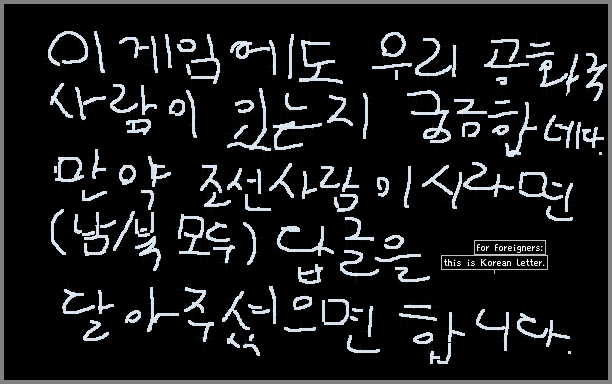 이 게임에도 우리 공화국
사람이 있는지 궁금합네다.
만약 조선사람이시라면
(남/북 모두) 답글을
for foreigners:
this is Korean letter.
달아주셨으면 합니다.